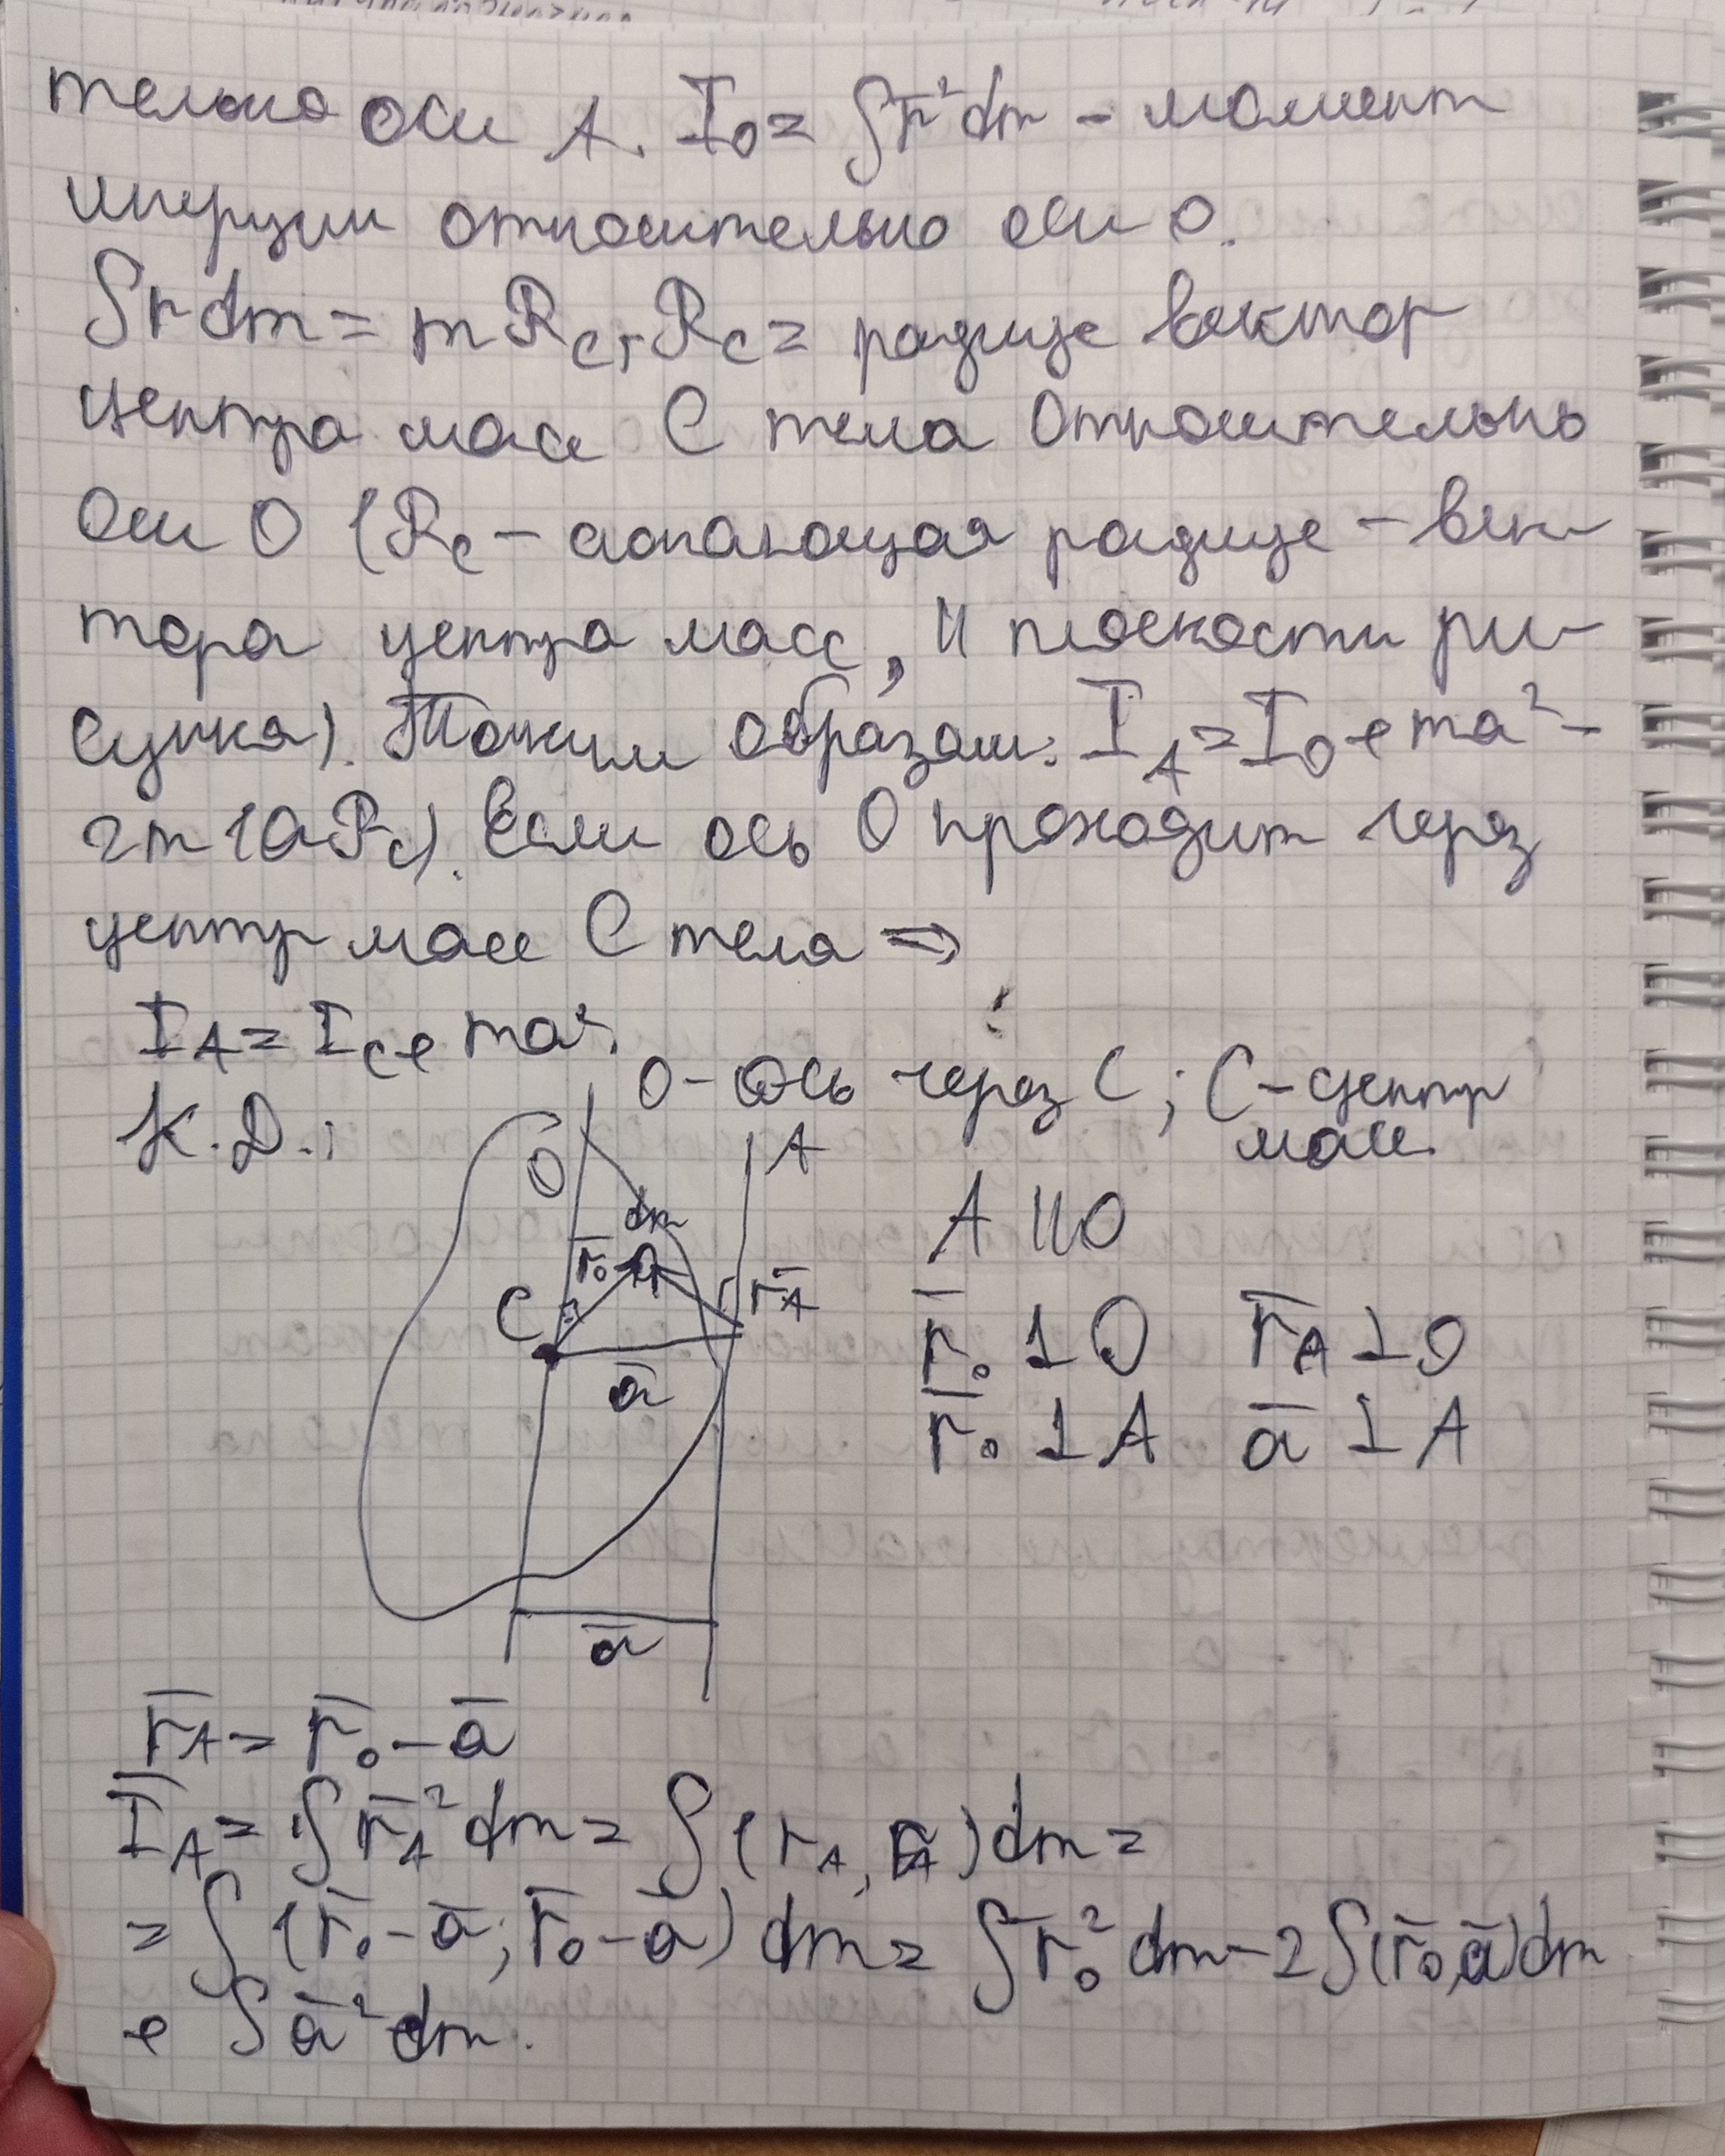 тельно оси A. I₀ = ∫r̄²dm - момент
инерции относительно оси O.
∫r dm = mR_c, R_c = радиус вектор
центра масс C тела относительно
оси O (R_c - радиус - век
тора центра масс, || плоскости ри-
сунка). Таким образом: I_A = I_O + ma² -
2m(aR_c). Если ось O проходит через
центр масс C тела ⇒
I_A = I_C + ma².
O - ось через C ; C - центр
масс.
К.Д.:
O
A
dm
A || O
r̄₀
r̄_A
C
r̄₀ ⊥ O r̄_A ⊥ O
ā
r̄₀ ⊥ A ā ⊥ A
ā
r̄_A = r̄₀ - ā
I_A = ∫r̄_A² dm = ∫(r_A, r_A)dm =
= ∫(r̄₀ - ā; r̄₀ - ā) dm = ∫r̄₀² dm - 2∫(r̄₀, ā)dm
+ ∫ā² dm.